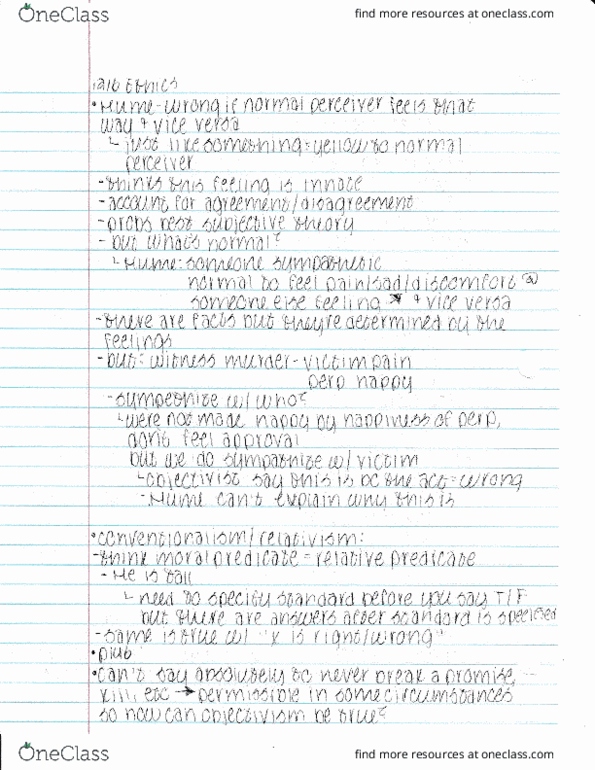 OneClass
find more resources at oneclass.com
12/6 Ethics
•Hume-wrong if normal perceiver feels that
way + vice versa
└ just like something=yellow to normal
perceiver
-thinks this feeling is innate
-account for agreement/disagreement
-probs best subjective theory
-but what's normal?
└Hume: someone sympathetic
normal to feel pain/sad/discomfort @
someone else feeling + vice versa
-there are facts but they're determined by the
feelings
-but: witness murder-victim pain
perp happy
-sympathize w/ who?
└we're not made happy by happiness of perp,
don't feel approval
but we do sympathize w/ victim
└objectivist say this is bc the act=wrong
-Hume can't explain why this is
•conventionalism/relativism:
-think moral predicate=relative predicate
-He is tall
└ need to specify standard before you say T/F
but there are answers after standard is specified
-same is true w/ "x is right/wrong"
•
•can't say absolutely to never break a promise,
kill, etc → permissible in some circumstances
so how can objectivism be true?
OneClass
find more resources at oneclass.com